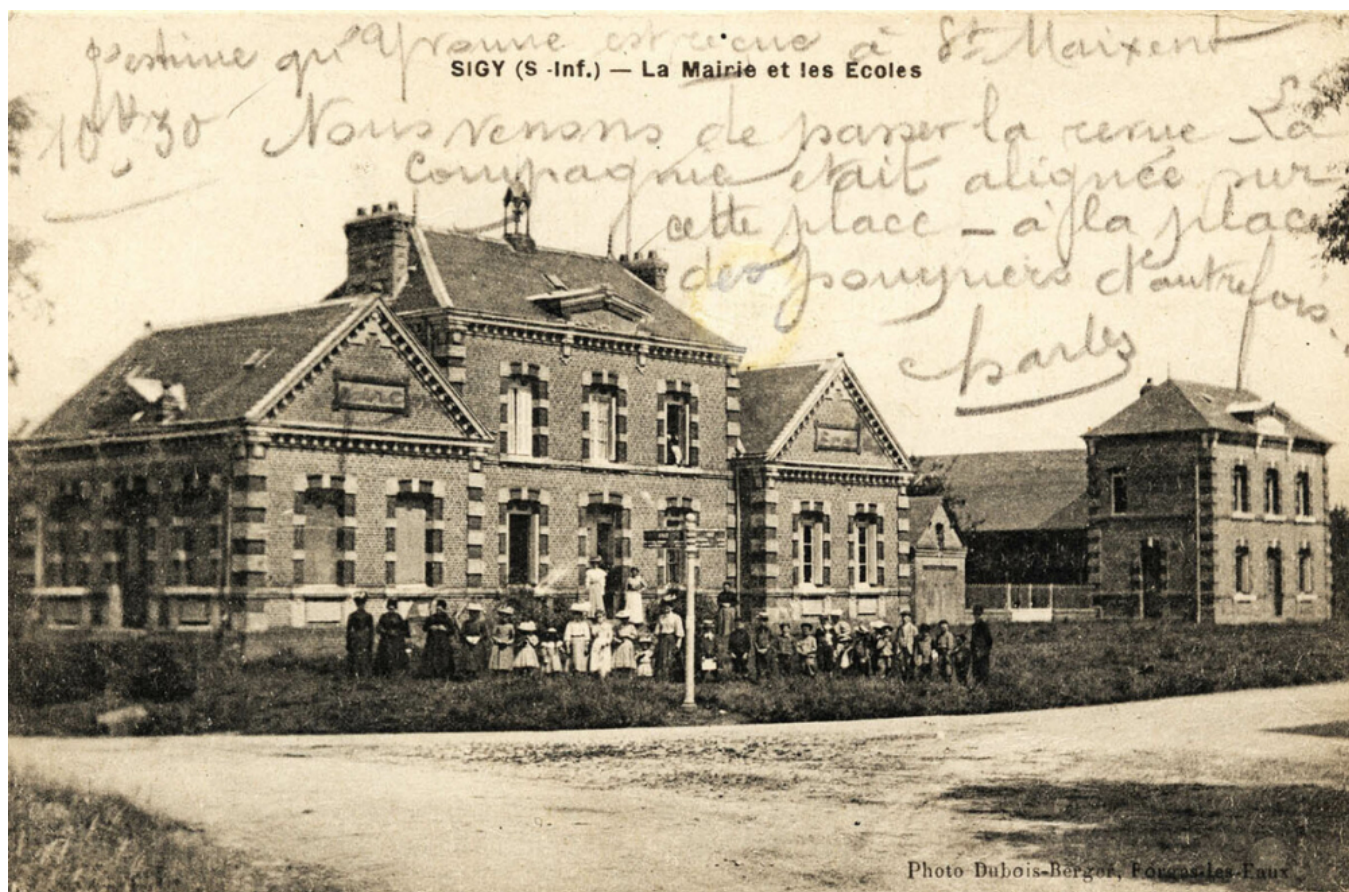 J'estime qu'Yvonne est recue à St Maixent
SIGY (S -Inf.) — La Mairie et les Ecoles
10H30 Nous venons de passer la revue La
compagnie était alignée sur
cette place — à la place
des d'autrefois.
Charles
Photo Dubois-Berger, Forges-les-Eaux